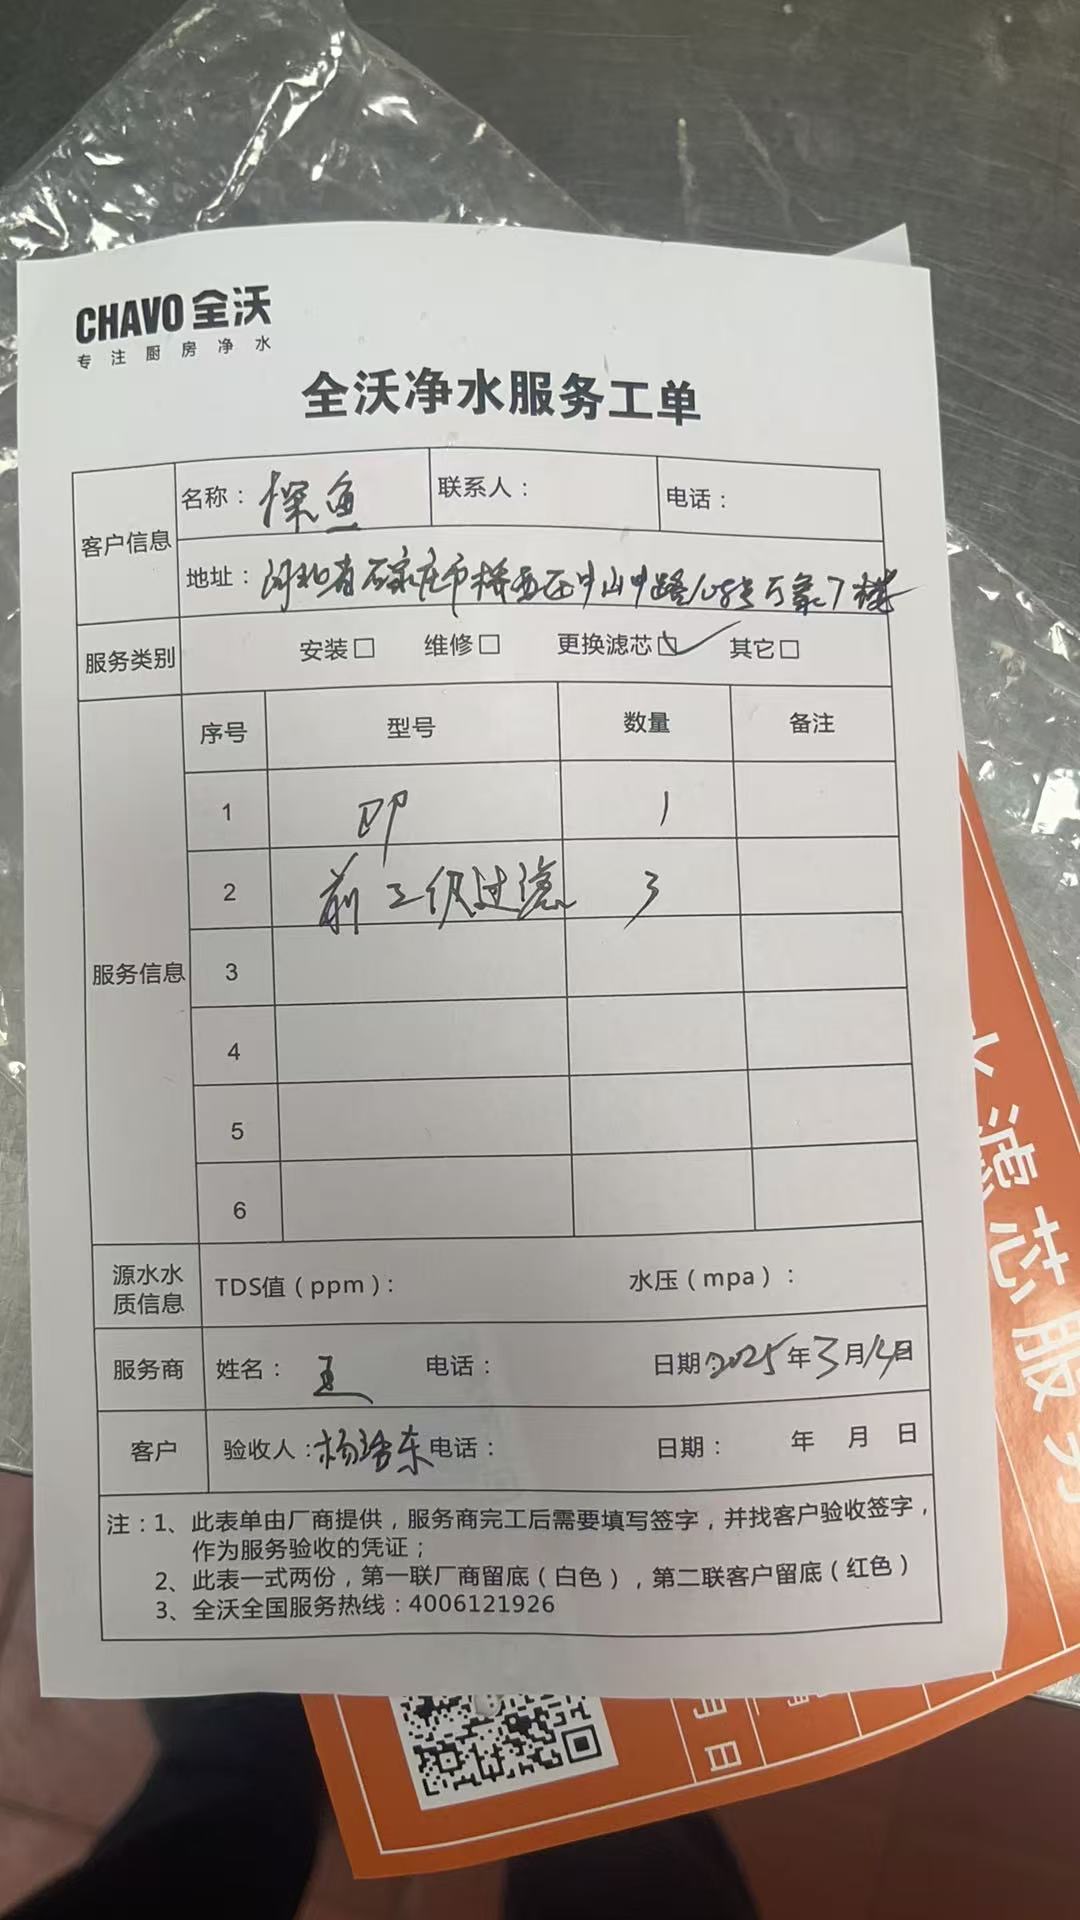 CHAVO 全沃
专注厨房净水
全沃净水服务工单
客户信息
名称：探鱼
联系人：
电话：
地址：河北省石家庄市桥西区中山中路108号万象7楼
服务类别
安装□ 维修□ 更换滤芯☑ 其它□
服务信息
序号 型号 数量 备注
1 1
2 前三级过滤 3
3
4
5
6
源水水质信息
TDS值（ppm）： 水压（mpa）：
服务商 姓名：王 电话： 日期：2025年3月14日
客户 验收人：杨浩东 电话： 日期： 年 月 日
注：1、此表单由厂商提供，服务商完工后需要填写签字，并找客户验收签字，
作为服务验收的凭证；
2、此表一式两份，第一联厂商留底（白色），第二联客户留底（红色）
3、全沃全国服务热线：4006121926
水滤芯服务
月
日